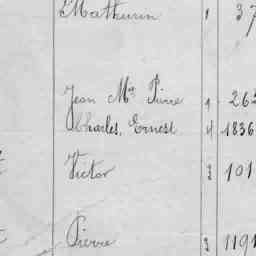 Mathurin 1 37
Jean Mie Pierre 1 263
Charles, Ernest 4 1836
Victor 3 101
Pierre 3 1191